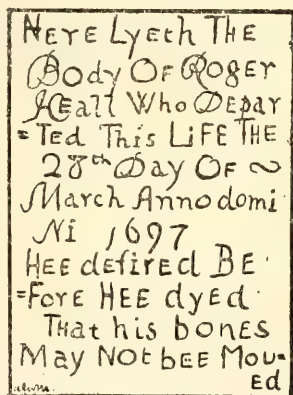 HERE LyEth THE
Body OF Roger
HEall Who Depar
=Ted This LiFE THE
28th Day OF ~
March Anno domi
Ni 1697
HEE desired BE
=Fore HEE dyed
THat his bones
May Not bEE Mou=
Ed